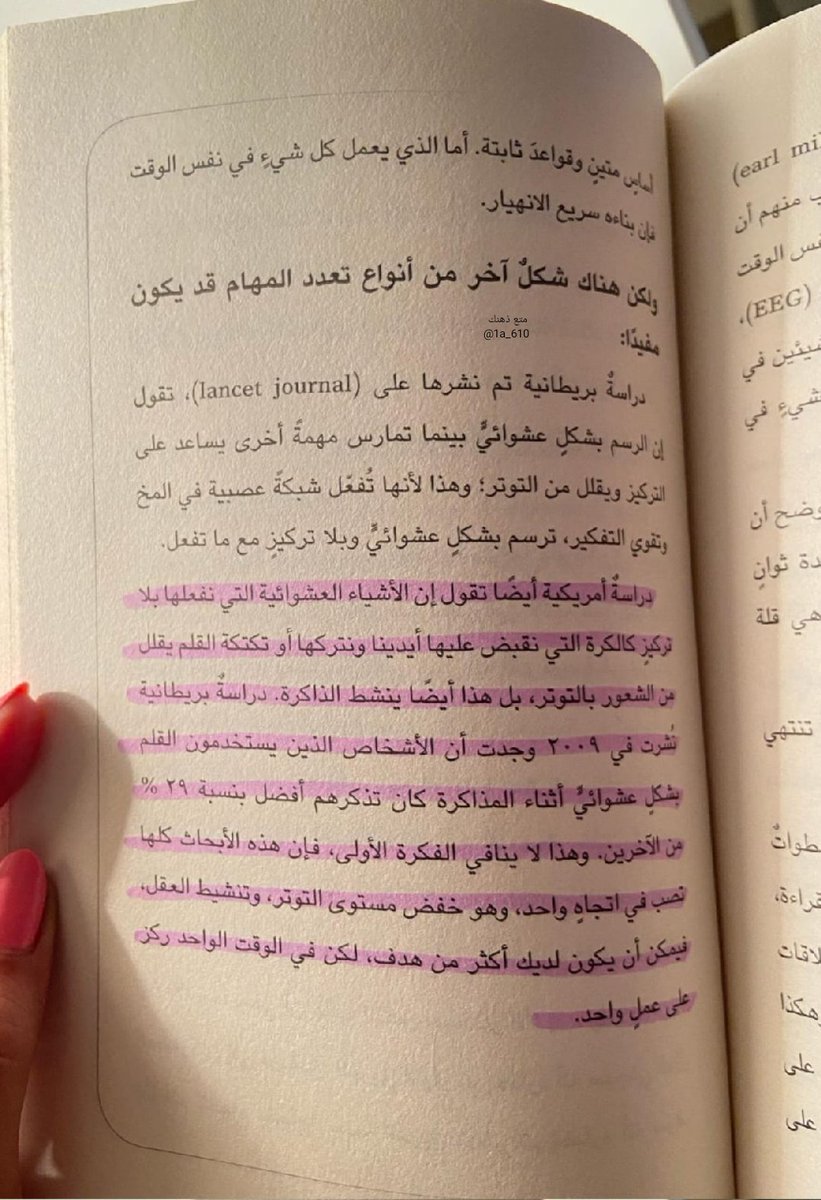 أساسٍ متينٍ وقواعدَ ثابتة. أما الذي يعمل كل شيءٍ في نفس الوقت
فإن بناءه سريع الانهيار.
ولكن هناك شكلٌ آخر من أنواع تعدد المهام قد يكون
مفيدًا:
متع ذهنك
@1a_610
دراسةٌ بريطانية تم نشرها على (lancet journal)، تقول
إن الرسم بشكلٍ عشوائيٍّ بينما تمارس مهمةً أخرى يساعد على
التركيز ويقلل من التوتر؛ وهذا لأنها تُفعّل شبكةً عصبية في المخ
وتقوي التفكير، ترسم بشكلٍ عشوائيٍّ وبلا تركيزٍ مع ما تفعل.
دراسةٌ أمريكية أيضًا تقول إن الأشياء العشوائية التي نفعلها بلا
تركيزٍ كالكرة التي نقبض عليها أيدينا ونتركها أو تكتكة القلم يقلل
من الشعور بالتوتر، بل هذا أيضًا ينشط الذاكرة. دراسةٌ بريطانية
نُشرت في ٢٠٠٩ وجدت أن الأشخاص الذين يستخدمون القلم
بشكلٍ عشوائيٍّ أثناء المذاكرة كان تذكرهم أفضل بنسبة ٢٩ %
من الآخرين. وهذا لا ينافي الفكرة الأولى، فإن هذه الأبحاث كلها
تصب في اتجاهٍ واحد، وهو خفض مستوى التوتر، وتنشيط العقل،
فيمكن أن يكون لديك أكثر من هدف، لكن في الوقت الواحد ركز
على عملٍ واحد.
منهم أن
الوقت
(EEG)،
شيئين في
في
أن
ثوانٍ
هي قلة
تنتهي
وهكذا
على
على